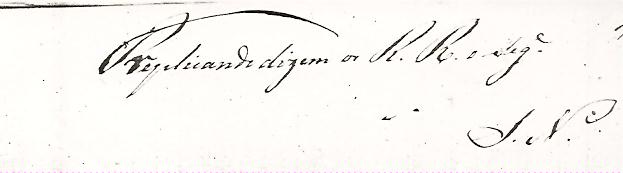 Replicando dizem os R. R. o seg.e
S. N.